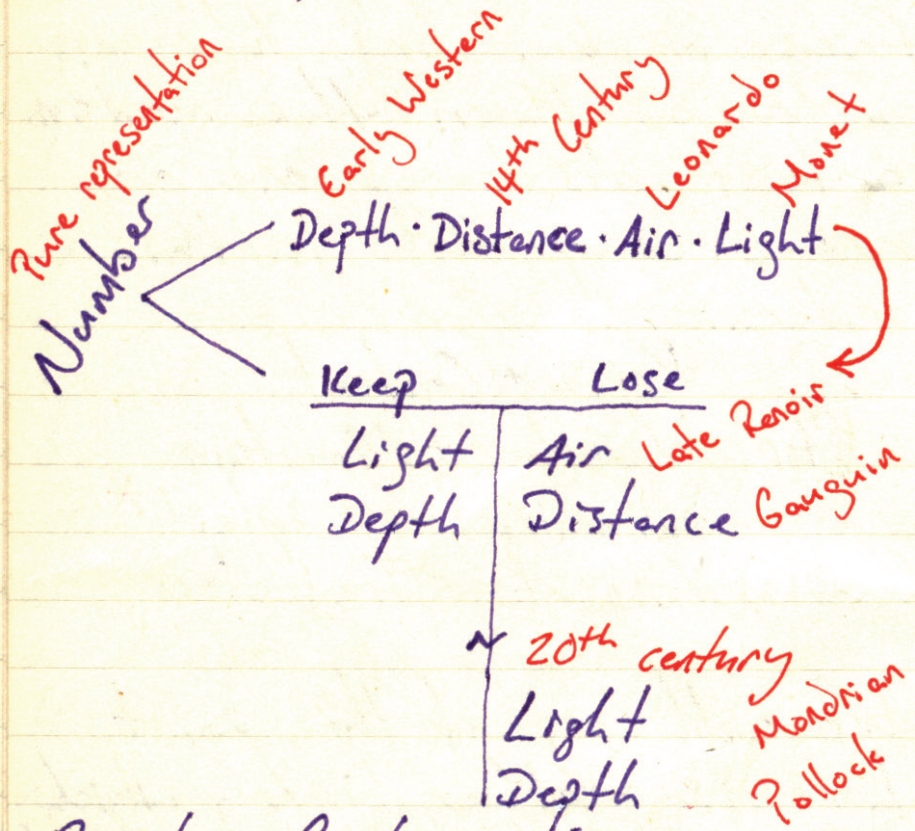 Pure representation
Number
Early Western
14th Century
Leonardo
Monet
Depth · Distance · Air · Light
Keep Lose
Light Air Late Renoir
Depth Distance Gauguin
~ 20th century
Light Mondrian
Depth Pollock